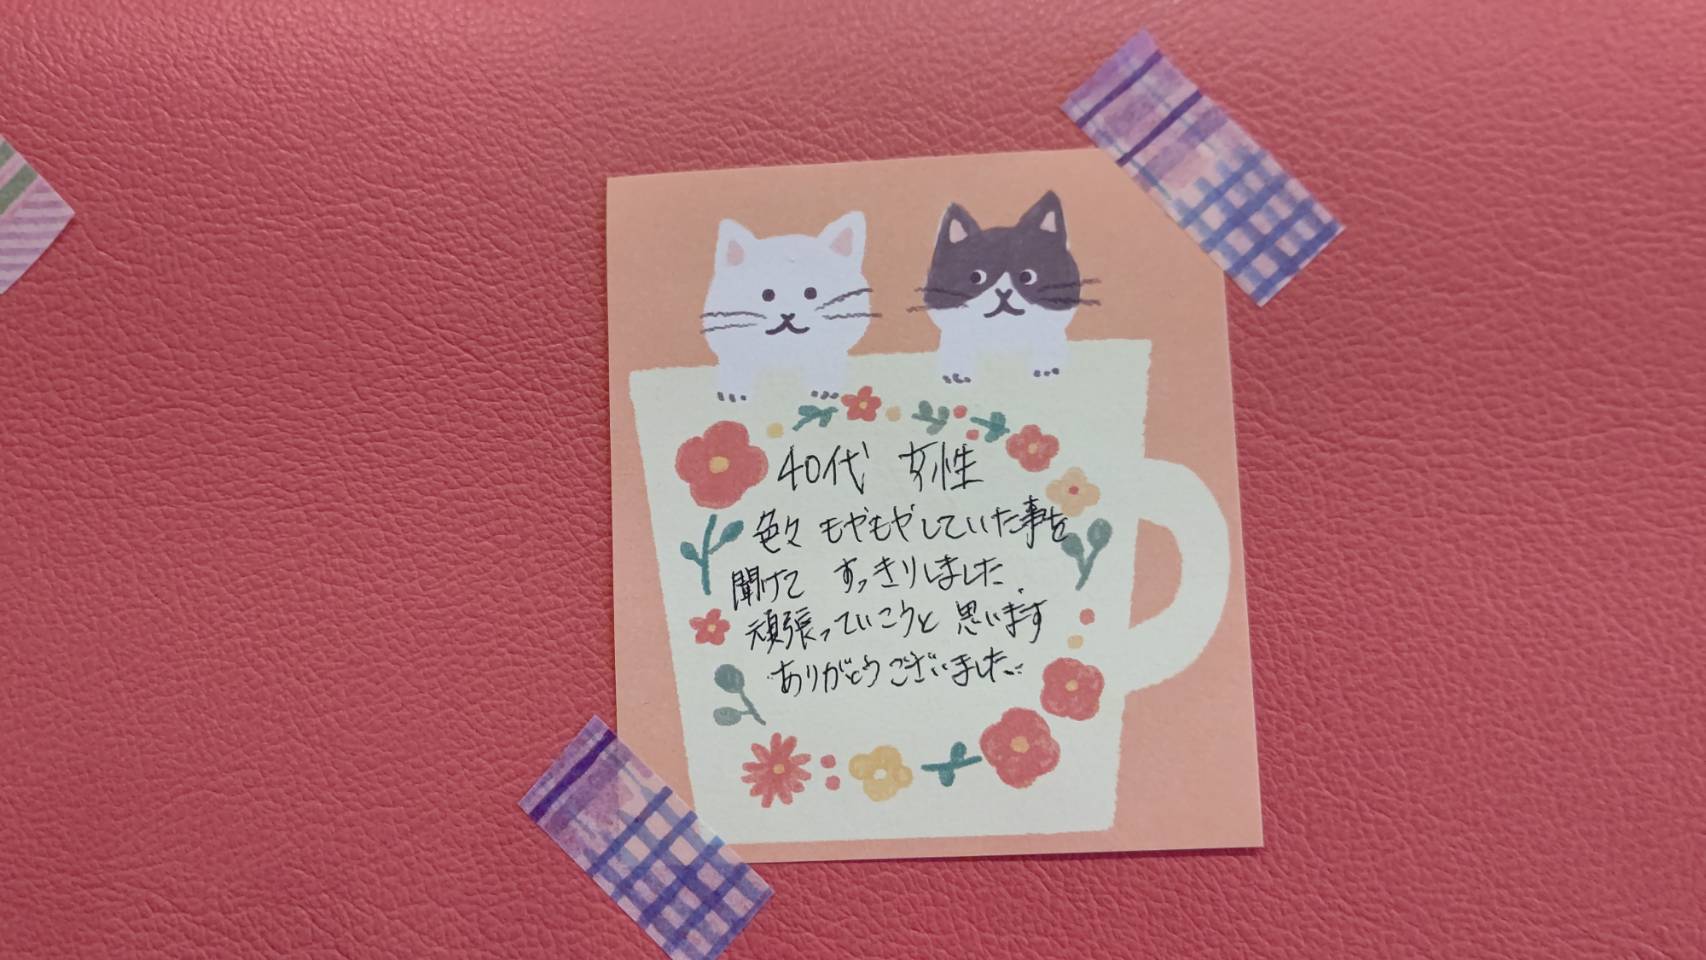 40代 女性
色々 もやもやしていた事を
聞けて すっきりしました。
頑張っていこうと 思います
ありがとうございました。